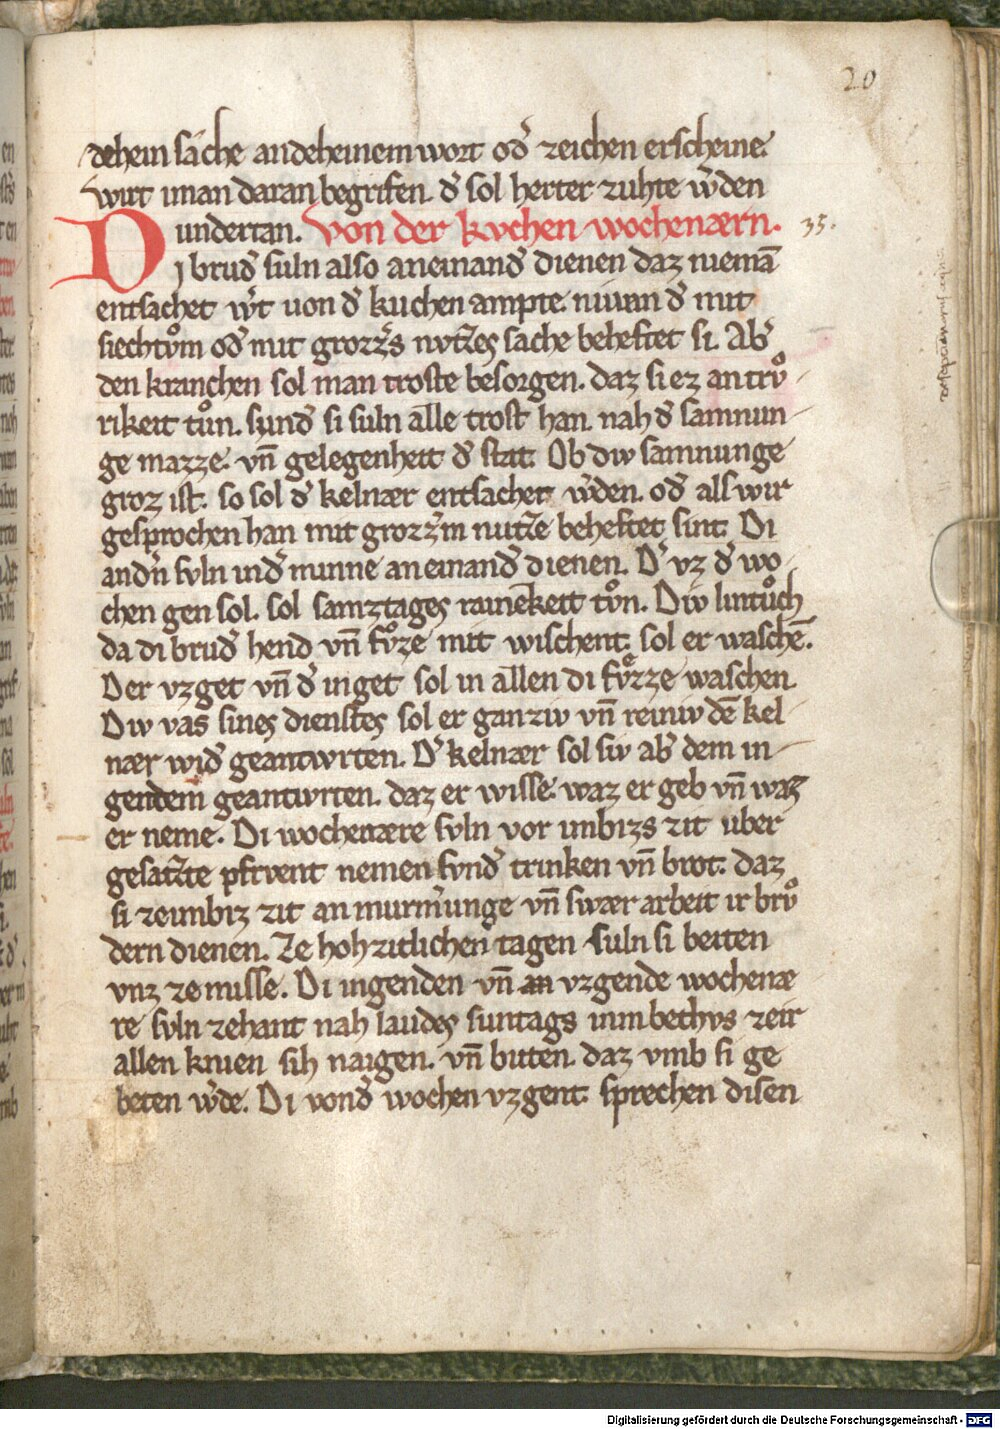 20
dehein sache an deheinem wort od͛ zeichen erscheine.
wirt iman daran begrifen. d͛ sol herter zuhte w͛den
undertan. von der kvchen wochenærn. 35.
Di brud͛ suln also aneinand͛ dienen daz niemā
entsachet w͛t uon d͛ kuchen ampte. niwan d͛ mit
siechtům od͛ mit grozz͛s nvtzes sache beheftet si. Ab͛
den kranchen sol man troste besorgen. daz si ez an trv̊
rikeit tůn. sund͛ si suln alle trost han. nah d͛ samnun
ge mazze. vn̄ gelegenheit d͛ stat. Ob diw samnunge
groz ist. so sol d͛ kelnær entsachet w͛den. od͛ als wir
gesprochen han mit grozz͛m nutze beheftet sint. Di
and͛n svln ind͛ minne aneinand͛ dienen. D͛ vz d͛ wo
chen gen sol. sol samztages rainekeit tv̊n. Diw lintůch
da di brud͛ hend vn̄ fv̊ze mit wischent. sol er waschē.
Der vzget vn̄ d͛ inget sol in allen di fv̊zze waschen.
Diw vas sines dienstes sol er ganziw vn̄ reiniw dē kel
nær wid͛ geantwrten. D͛ kelnær sol siv ab͛ dem in
gendem geantwrten. daz er wisse. waz er geb vn̄ waz
er neme. Di wochenære svln vor imbizs zit uber
gesatzte pfrvent nemen svnd͛ trinken vn̄ brot. daz
si zeimbiz zit an murm͛unge vn̄ swær arbeit ir brv̊
dern dienen. Ze hohzitlichen tagen suln si beiten
vnz ze misse. Di ingenden vn̄ an vzgende wochenæ
re svln zehant nah laudes suntags inmbethvs zeir
allen knien sih naigen. vn̄ biten. daz vmb si ge
beten w͛de. Di vond͛ wochen vzgent. sprechen disen
Digitalisierung gefördert durch die Deutsche Forschungsgemeinschaft - DFG